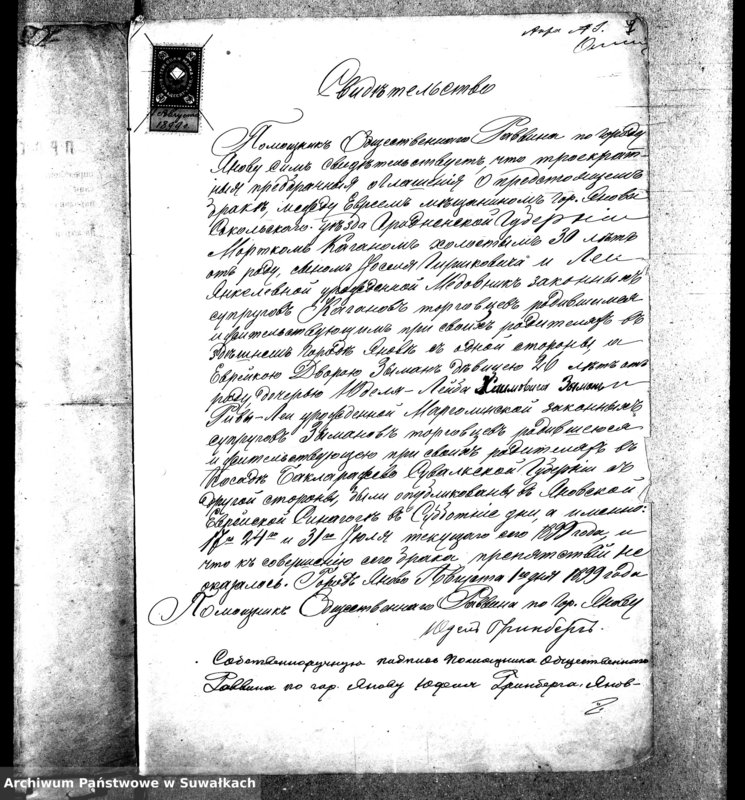 7
Свидѣтельство
Августа
1899 г.
Помощникъ Общественнаго Раввина по городу
Янову симъ свидѣтельствуетъ, что троекрат-
ныя предбрачныя оглашенія о предстоящемъ
бракѣ, между Евреемъ мѣщаниномъ гор. Янова
Сокольскаго уѣзда Гродненской Губерніи
Мортхомъ Каганомъ холостымъ 30 лѣтъ
отъ роду, сыномъ Іоселя Гиршковича и Леи
Янкелевной урожденной Медовникъ законныхъ
супруговъ Кагановъ торговцевъ родившимся
и жительствующимъ при своихъ родителяхъ въ
здѣшнемъ городѣ Яновѣ съ одной стороны, и
Еврейкою Дворою Зыманъ дѣвицею 20 лѣтъ отъ
роду дочерью Юделя-Лейба Хаимовича Зыманъ и
Ривы-Леи урожденной Марголинской законныхъ
супруговъ Зымановъ торговцевъ родившеюся
и жительствующею при своихъ родителяхъ въ
Посадѣ Бакларжево Сувалкской Губерніи съ
другой стороны, были опубликованы въ Яновской
Еврейской Синагогѣ въ Субботніе дни а именно:
17го 24го и 31го Іюля текущаго сего 1899 года, и
что къ совершенію сего брака препятствій не
оказалось. Городъ Яновъ Августа 1го дня 1899 года
Помощникъ Общественнаго Раввина по гор. Янову
Гринбергъ.
Собственноручную подпись Помощника Общественнаго
Раввина по гор. Янову Гринберга. Янов-
Archiwum Państwowe w Suwałkach